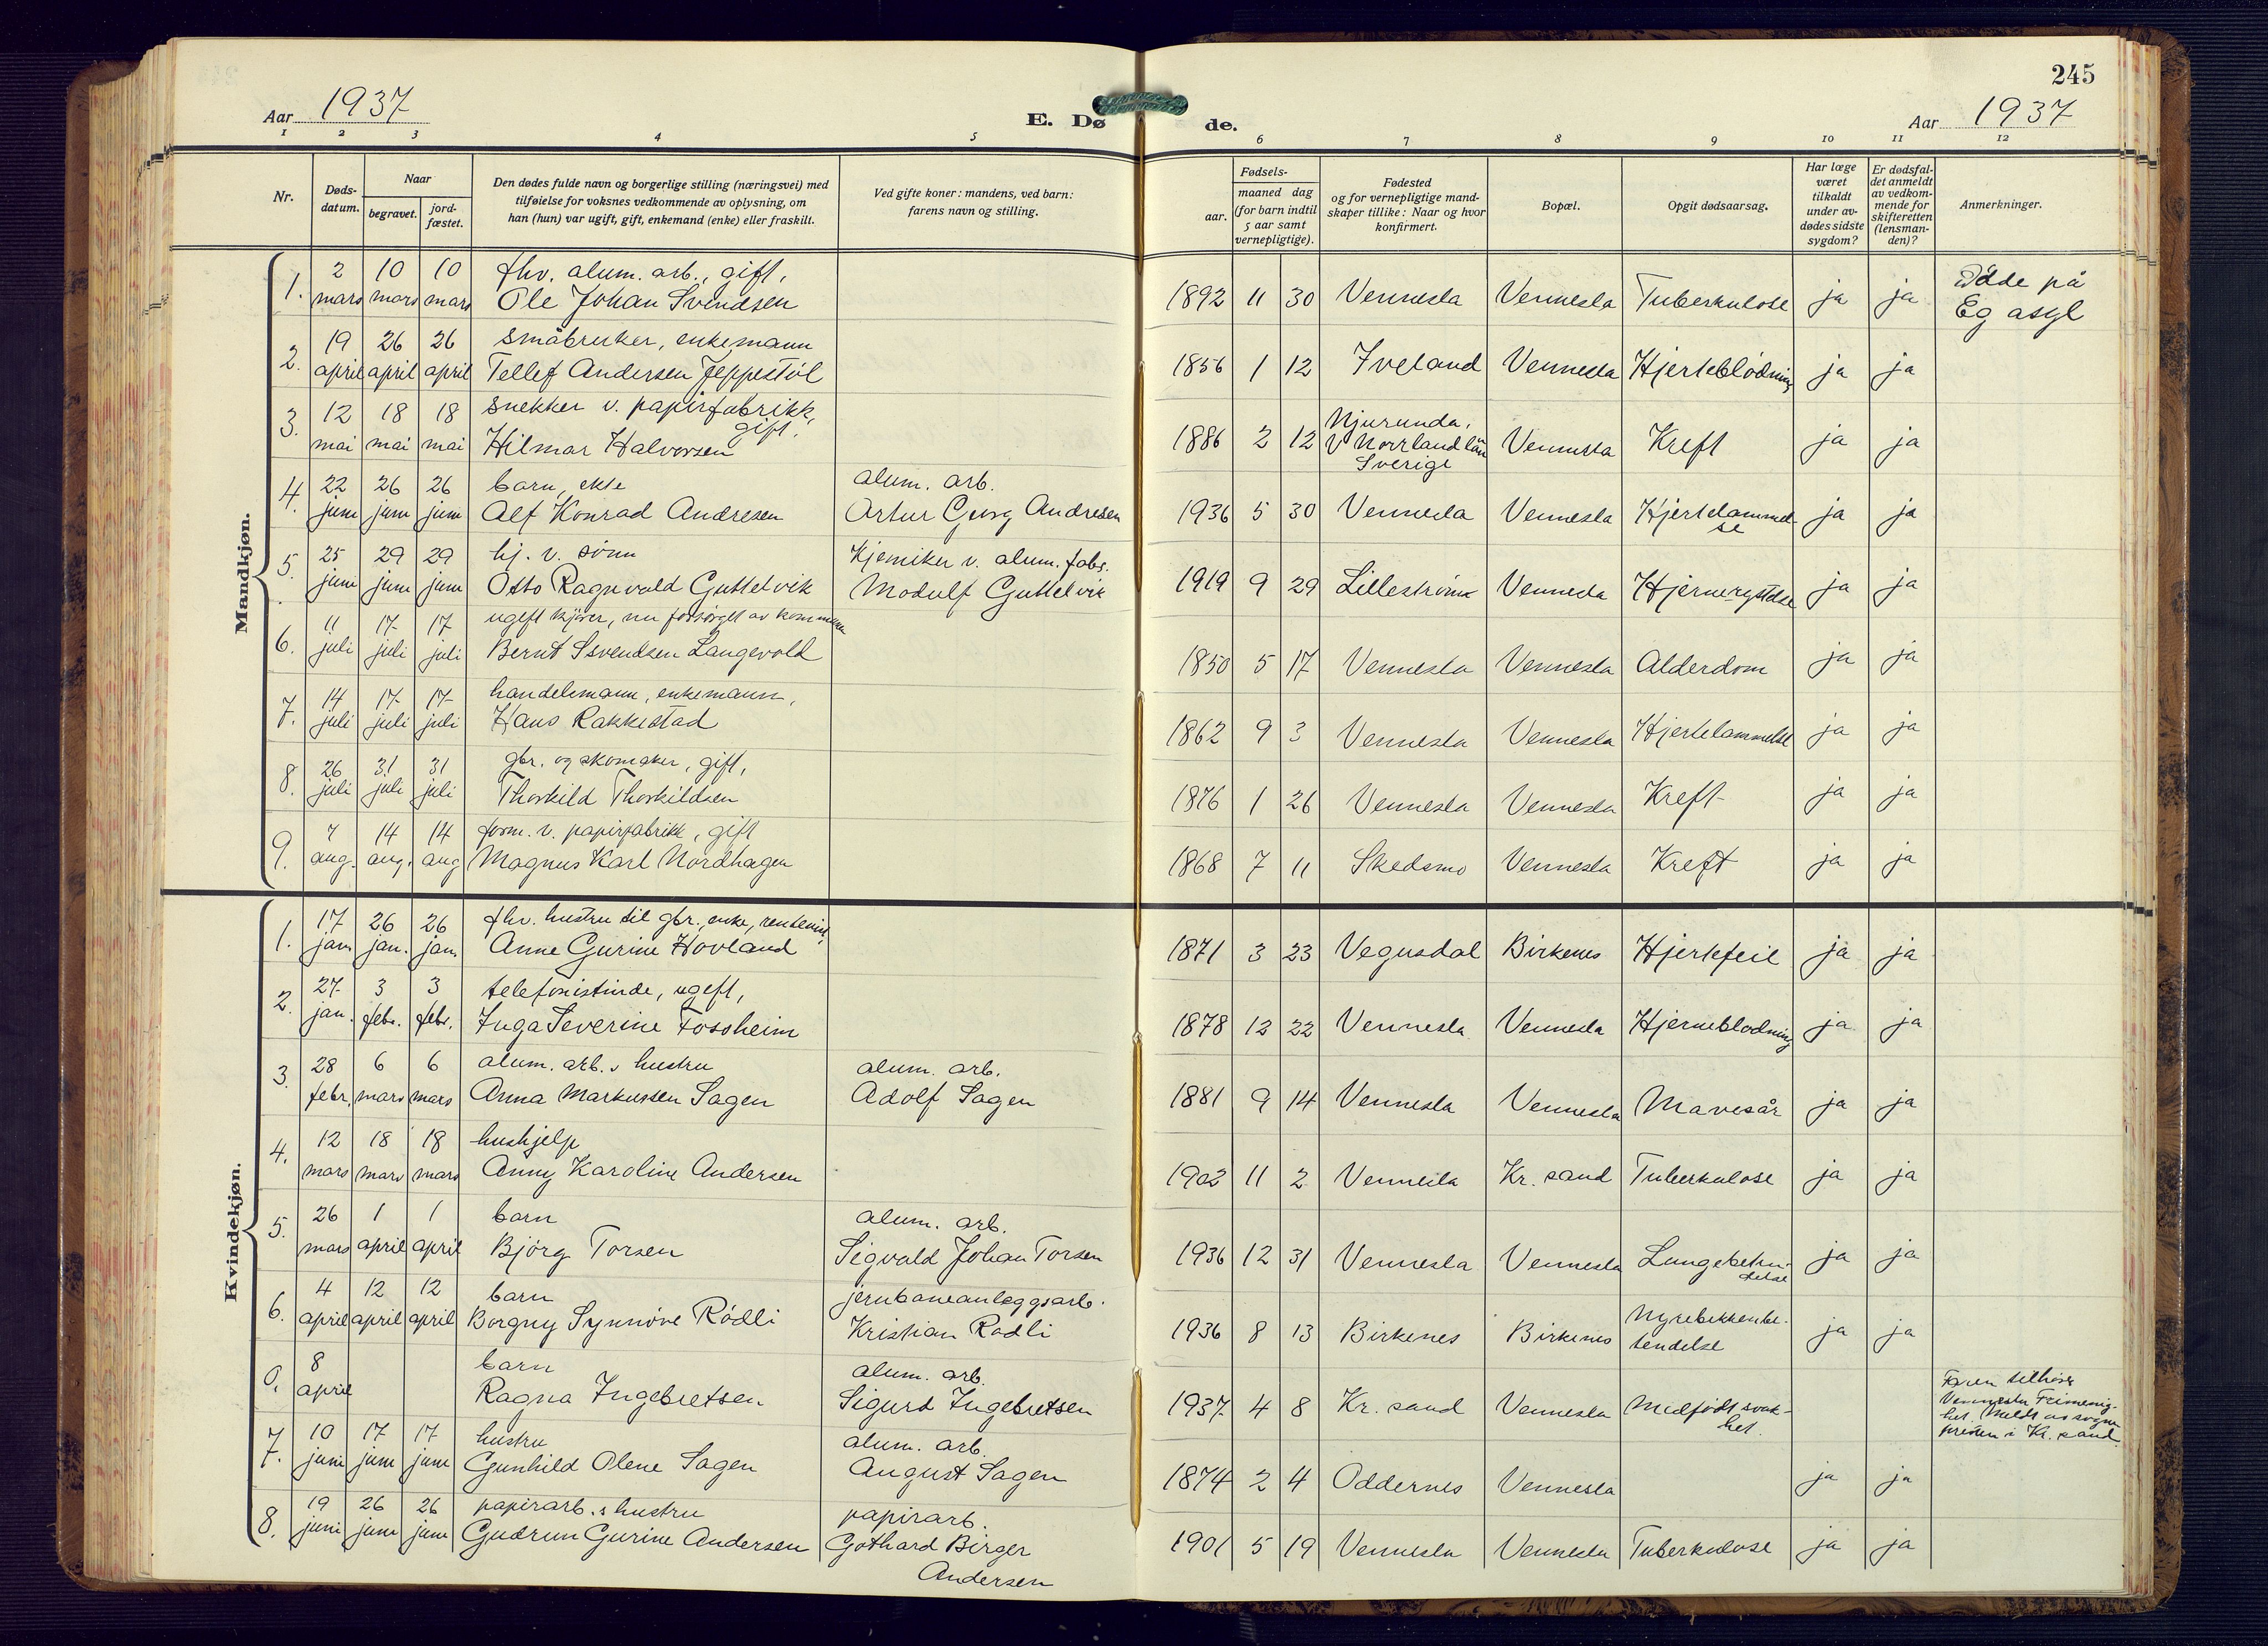 245
Aar 1937
E. Dø
de.
Aar 1937
1 2 3 4 5 6 7 8 9 10 11 12
Nr.
Døds-
datum.
Naar
begravet.
jord-
fæstet.
Den dødes fulde navn og borgerlige stilling (næringsvei) med
tilføielse for voksnes vedkommende av oplysning, om
han (hun) var ugift, gift, enkemand (enke) eller fraskilt.
Ved gifte koner: mandens, ved barn:
farens navn og stilling.
Fødsels-
aar.
maaned dag
(for barn indtil
5 aar samt
vernepligtige).
Fødested
og for vernepligtige mand-
skaper tillike: Naar og hvor
konfirmert.
Bopæl.
Opgit dødsaarsag.
Har læge
været
tilkaldt
under av-
dødes sidste
sygdom?
Er dødsfal-
det anmeldt
av vedkom-
mende for
skifteretten
(lensman-
den)?
Anmerkninger.
Mandkjøn.
2 10 10 fhv. alum. arb., gift, Døde på
1. mars mars mars Ole Johan Svendsen 1892 11 30 Vennesla Vennesla Tuberkulose ja ja Eg asyl
19 26 26 småbruker, enkemann
2. april april april Tellef Andersen Jeppestöl 1856 1 12 Iveland Vennesla Hjerteblødning ja ja
12 18 18 snekker v. papirfabrikk, gift. Njurunda,
3. mai mai mai Hilmar Halvorsen 1886 2 12 V Norrland län Vennesla Kreft ja ja
Sverige
22 26 26 barn, ekte alum. arb.
4. juni juni juni Alf Konrad Andresen Artur Georg Andresen 1936 5 30 Vennesla Vennesla Hjertelammel- ja ja
se
25 29 29 hj. v. sønn Kjemiker v. alum. fabr.
5. juni juni juni Otto Ragnvald Guttelvik Modulf Guttelvik 1919 9 29 Lillestrøm Vennesla Hjernerystelse ja ja
11 17 17 ugift kjører, nu forsørget av kommunen
6. juli juli juli Bernt Ssvendsen Langevold 1850 5 17 Vennesla Vennesla Alderdom ja ja
14 17 17 handelsmann, enkemann,
7. juli juli juli Hans Rakkestad 1862 9 3 Vennesla Vennesla Hjertelammelse ja ja
26 31 31 gbr. og skomaker, gift,
8. juli juli juli Thorkild Thorkildsen 1876 1 26 Vennesla Vennesla Kreft ja ja
7 14 14 form. v. papirfabrikk, gift
9. aug. aug. aug Magnus Karl Nordhagen 1868 7 11 Skedsmo Vennesla Kreft ja ja
Kvindekjøn.
17 26 26 fhv. hustru til gbr., enke,
1. jan. jan. jan. Anne Gurine Hovland 1871 3 23 Vegusdal Birkenes Hjertefeil ja ja
27 3 3 telefonistinde, ugift,
2. jan. febr. febr. Inga Severine Fossheim 1878 12 22 Vennesla Vennesla Hjerneblødning ja ja
28 6 6 alum. arb.s hustru alum. arb.
3. febr. mars mars Anna Markussen Sagen Adolf Sagen 1881 9 14 Vennesla Vennesla Mavesår ja ja
12 18 18 hushjelp
4. mars mars mars Anny Karoline Andersen 1902 11 2 Vennesla Kr. sand Tuberkulose ja ja
26 1 1 barn alum. arb.
5. mars april april Bjørg Torsen Sigvald Johan Torsen 1936 12 31 Vennesla Vennesla Lungebeten- ja ja
delse
4 12 12 barn jernbaneanleggsarb. Nyrebekkenbe-
6. april april april Borgny Synnöve Rödli Kristian Rødli 1936 8 13 Birkenes Birkenes tendelse ja ja
8 barn alum. arb. Faren tilhører
0. april Ragna Ingebretsen Sigurd Ingebretsen 1937 4 8 Kr. sand Vennesla Medfødt svak- Vennesla Frimenig-
het. het. Meldt av sogne
presten i Kr. sand
10 17 17 hustru alum. arb.
7. juni juni juni Gunhild Olene Sagen August Sagen 1874 2 4 Oddernes Vennesla ja ja
19 26 26 papirarb.s hustru papirarb.
8. juni juni juni Gudrun Gurine Andersen Gothard Birger 1901 5 19 Vennesla Vennesla Tuberkulose ja ja
Andersen